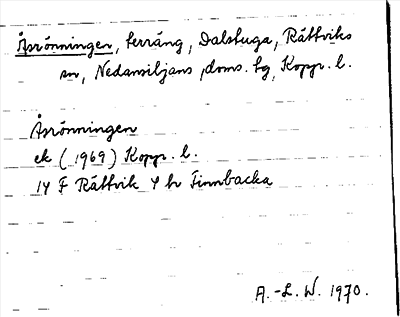 Åsrönningen, terräng, Dalstuga, Rättviks
sn, Nedansiljans doms. tg, Kopp. l.
Åsrönningen
ek (1969) Kopp. l.
14 F Rättvik 4 br Finnbacka
A.-L. W. 1970.